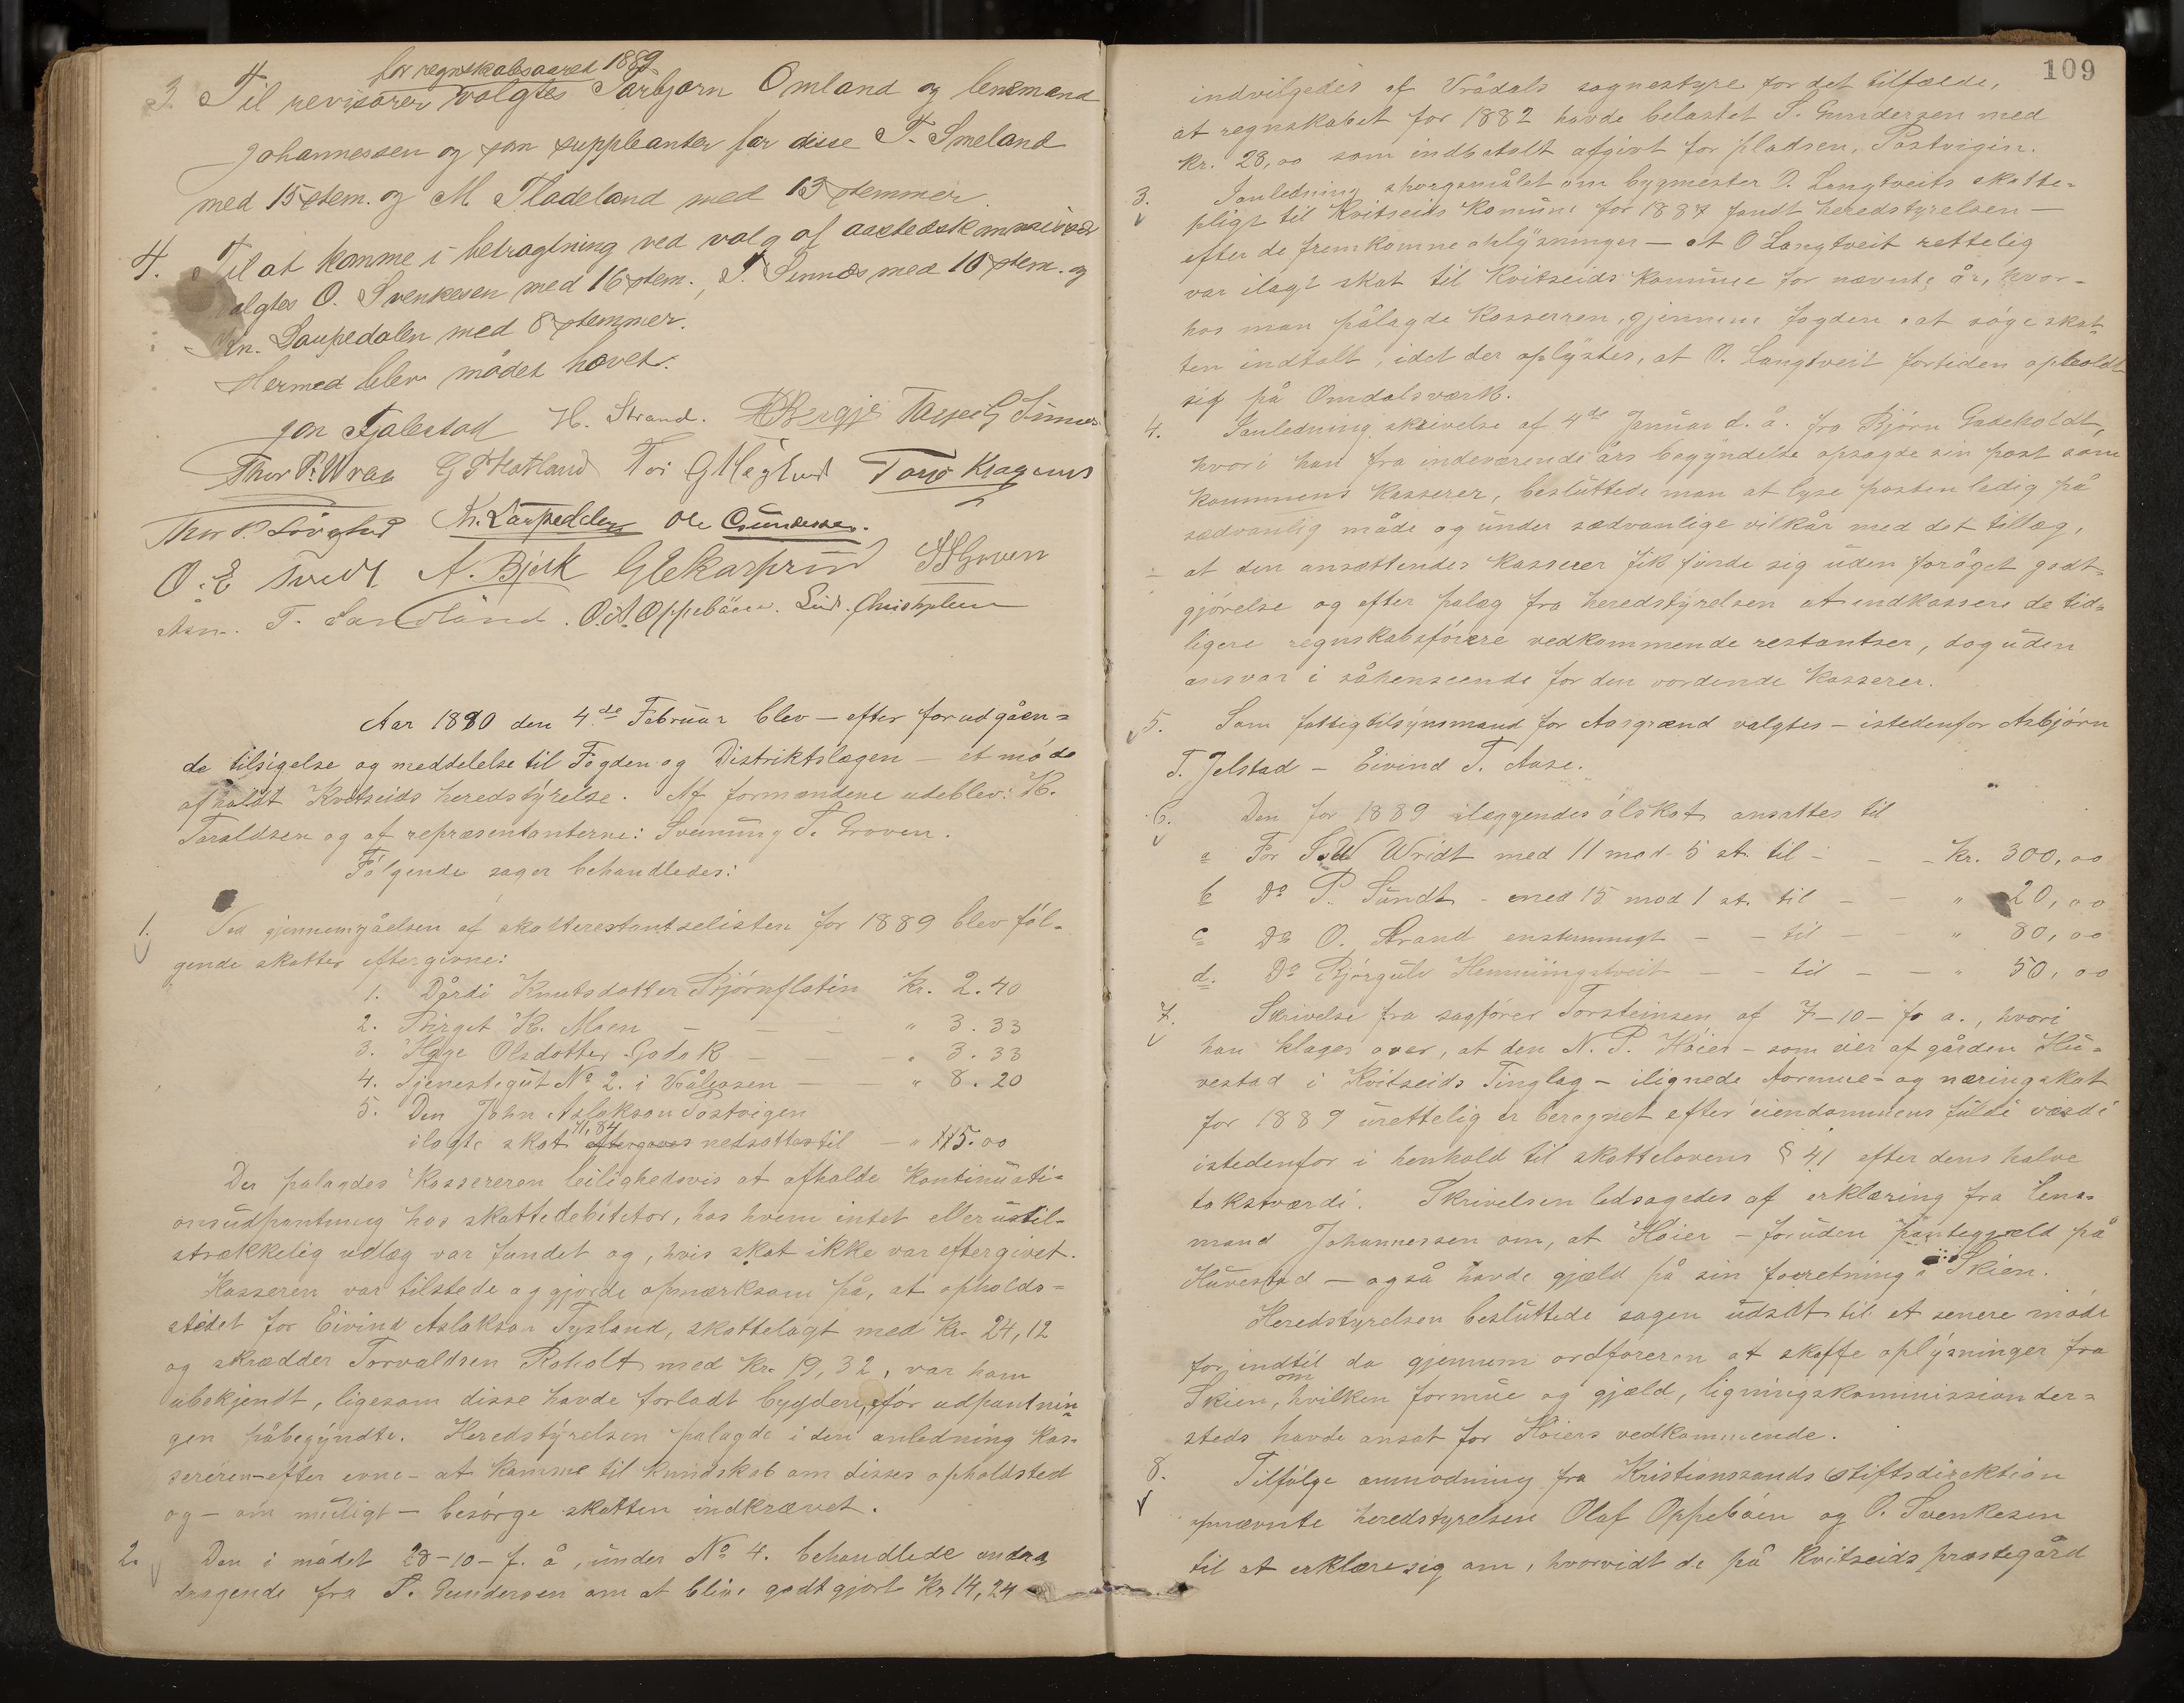 for regnskabsaaret 1889
3. Til revisorer valgtes Tarbjørn Omland og lensmand
Johannessen og som suppleanter for disse T. Smeland
med 15 stem. og M. Fladeland med 13 stemmer.
4. Til at komme i betragtning ved valg af aastedskommissær
valgtes O. Svenkesen med 16 stem., T. Sinnes med 10 stem. og
Kn. Laupedalen med 8 stemmer.
Hermed blev mødet hævet.
Jon Fjalestad H. Strand. Tarjei G Sinnes
Thor P. Wraa G P Hatland Toi G Haglund Tarjo Kragenes
Thor P. Løvglid Kn. Laupedalen Ole Gundersen.
O. E. Tvedt A. Bjerk G Ekarprud
T. Sandland. O. A. Oppebøen.
Aar 1890 den 4de Februar blev — efter forudgåen-
de tilsigelse og meddelelse til Fogden og Distriktslægen — et møde
afholdt Kvitseids heredstyrelse. Af formændene udeblev: K.
Taraldsen og af repræsentanterne: Svenung T. Groven.
Følgende sager behandledes:
1. Ved gjennemgåelsen af skatterestantselisten for 1889 blev føl-
gende skatter eftergivne:
1. Dårdi Knutsdotter Bjørnflatin Kr. 2.40
2. Birget K. Moen — — — " 3.33
3. Hæge Olsdotter Godok — — — " 3.33
4. Tjenestegut No 2. i Vråliosen — — " 8.20
5. Den John Aslakson Tostvigen
71,84
ilagte skat eftergives nedsattes til — " 15.00
Der pålagdes Kassereren leilighedsvis at afholde Kontinuati-
onsudpantning hos skattedebitetor, hos hvem intet eller util-
strækkelig udlæg var fundet og, hvis skat ikke var eftergivet.
Kasseren var tilstede og gjorde opmærksom på, at opholds-
stedet for Eivind Aslakson Tysland, skattelagt med kr. 24,12
og skrædder Torvaldsen Roholt med kr. 19,32, var ham
ubekjendt, ligesom disse havde forladt bygden, før udpantnin-
gen påbegyndte. Heredstyrelsen pålagde i den anledning kas-
sereren — efter evne — at komme til kundskab om disses opholdsted
og — om muligt — besørge skatten indkrævet.
2. Den i mødet 28-10- f. å., under No 4. behandlede andra
dragende fra T. Gundersen om at blive godtgjort kr 14,24
109
indvilgedes af Vrådals sognestyre for det tilfælde,
at regnskabet for 1882 havde belastet T. Gundersen med
kr. 28,00 som indbetalt afgivt for pladsen, Tostvigin.
3. Ianledning spørgsmålet om bygmester O. Langtveits skatte-
pligt til Kvitseids Komune for 1887 fandt heredstyrelsen —
efter de fremkomne oplysninger — at O Langtveit rettelig
var ilagt skat til Kvitseids Komune for nævnte år, hvor-
hos man pålagde Kasserren, gjennem fogden, at søge skat-
ten indtalt, idet der oplystes, at O. Langtveit fortiden opholdt
sig på Omdalsværk.
4. Ianledning skrivelse af 4de Januar d. å. fra Bjørn Gadeholdt,
hvori han fra indeværende års begyndelse opsagde sin post som
kommunens Kasserer, besluttede man at lyse posten ledig på
sædvanlig måde og under sædvanlige vilkår med det tillæg,
at den ansættendes Kasserer fik finde sig uden forøget godt-
gjørelse og efter pålæg fra heredstyrelsen at indkassere de tid-
ligere regnskabsførere vedkommende restantser, dog uden
ansvar i såhenseende for den vordende Kasserer.
5. Som fattigtilsynsmand for Aasgrænd valgtes — istedenfor Asbjørn
T. Jelstad — Eivind T. Aase.
6. Den for 1889 ilæggendes ølskat ansattes til
a For S. W. Wridt med 11 mod 5 st. til — — kr. 300,00
b Do P. Sundt — med 15 mod 1 st. til — — " 20,00
c Do O. Strand enstemmigt — — til — — " 80,00
d. Do Bjørgulv Hemmingstveit — — til — — " 50,00
7. Skrivelse fra sagfører Torsteinsen af 7-10- f. a., hvori
han klager over, at den N. P. Høier — som eier af gården Hu-
vestad i Kvitseids Tinglag — ilignede formue- og næringskat
for 1889 urettelig er beregnet efter eiendommens fulde værdi
istedenfor i henhold til skattelovens § 41 efter dens halve
takstværdi. Skrivelsen ledsagedes af erklæring fra lens-
mand Johannessen om, at Høier — foruden pantegjæld på
Huvestad — også havde gjæld på sin forretning i Skien.
Heredstyrelsen besluttede sagen udsat til et senere møde
for indtil da gjennem ordføreren at skaffe oplysninger fra
om
Skien, hvilken formue og gjæld, ligningskommission der-
steds havde ansat for Høiers vedkommende.
8. Tilfølge anmodning fra Kristianssands Stiftsdirektion
opnævnte heredstyrelsen Olaf Oppebøen og O. Svenkesen
til at erklære sig om, hvorvidt de på Kvitseids præstegård